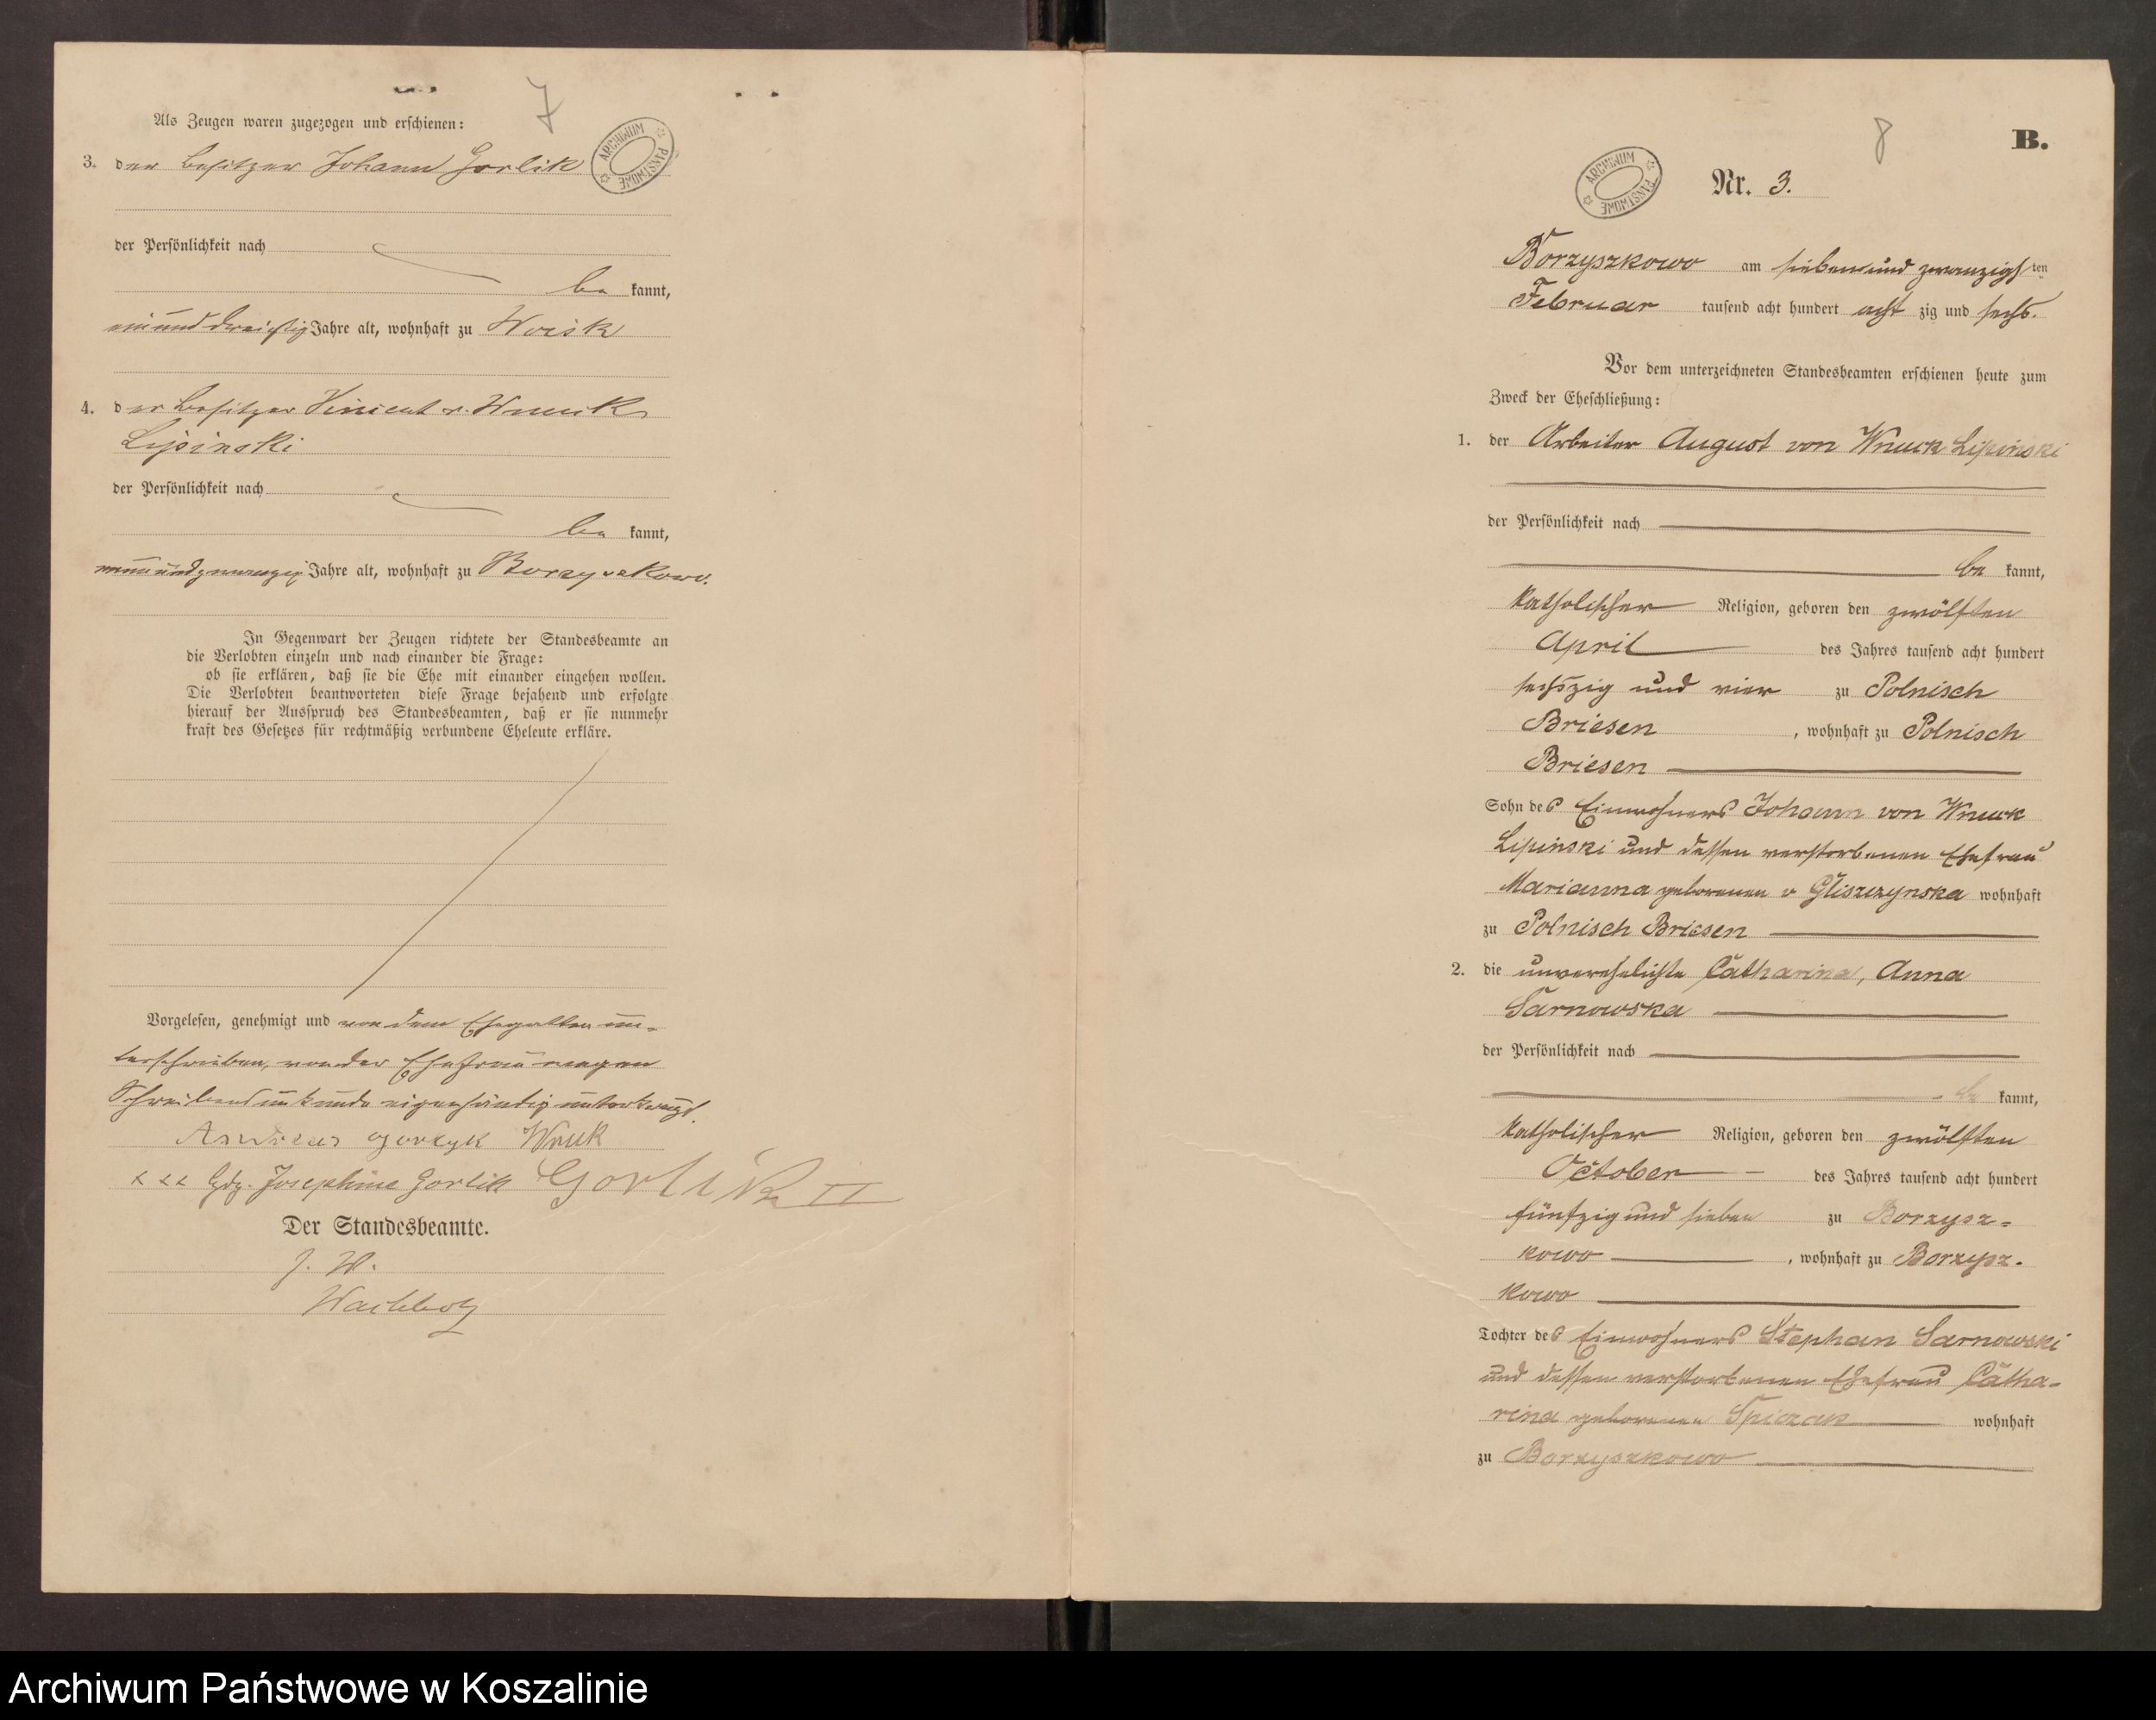 7
Als Zeugen waren zugezogen und erschienen:
ARCHIWUM PAŃSTWOWE
3. der Besitzer Johann Gorlik
der Persönlichkeit nach
be kannt,
einunddreißig Jahre alt, wohnhaft zu Woisk
4. der Besitzer Vincent v. Wnuck
Lipinski
der Persönlichkeit nach
be kannt,
neunundzwanzig Jahre alt, wohnhaft zu Borzyszkowo.
In Gegenwart der Zeugen richtete der Standesbeamte an
die Verlobten einzeln und nach einander die Frage:
ob sie erklären, daß sie die Ehe mit einander eingehen wollen.
Die Verlobten beantworteten diese Frage bejahend und erfolgte
hierauf der Ausspruch des Standesbeamten, daß er sie nunmehr
kraft des Gesetzes für rechtmäßig verbundene Eheleute erkläre.
Vorgelesen, genehmigt und von dem Ehegatten un-
terschrieben, von der Ehefrau wegen
Schreibensunkunde eigenhändig unterkreuzt.
Andreas Wnuk
xxx Hdz. Josephine Gorlik Gorlik II
Der Standesbeamte.
J. V.
8
B.
ARCHIWUM PAŃSTWOWE
Nr. 3.
Borzyszkowo am siebenundzwanzigs ten
Februar tausend acht hundert acht zig und sechs.
Vor dem unterzeichneten Standesbeamten erschienen heute zum
Zweck der Eheschließung:
1. der Arbeiter August von Wnuck Lipinski
der Persönlichkeit nach
be kannt,
katholischer Religion, geboren den zwölften
April des Jahres tausend acht hundert
sechszig und vier zu Polnisch
Briesen, wohnhaft zu Polnisch
Briesen
Sohn des Einwohners Johann von Wnuck
Lipinski und dessen verstorbenen Ehefrau
Marianna geborenen v Gliszczynska wohnhaft
zu Polnisch Briesen
2. die unverehelichte Catharina, Anna
Sarnowska
der Persönlichkeit nach
be kannt,
katholischer Religion, geboren den zwölften
October des Jahres tausend acht hundert
fünfzig und sieben zu Borzysz-
kowo, wohnhaft zu Borzysz-
kowo
Tochter des Einwohners Stephan Sarnowski
und dessen verstorbenen Ehefrau Catha-
rina geborenen Spiczak wohnhaft
zu Borzyszkowo
Archiwum Państwowe w Koszalinie